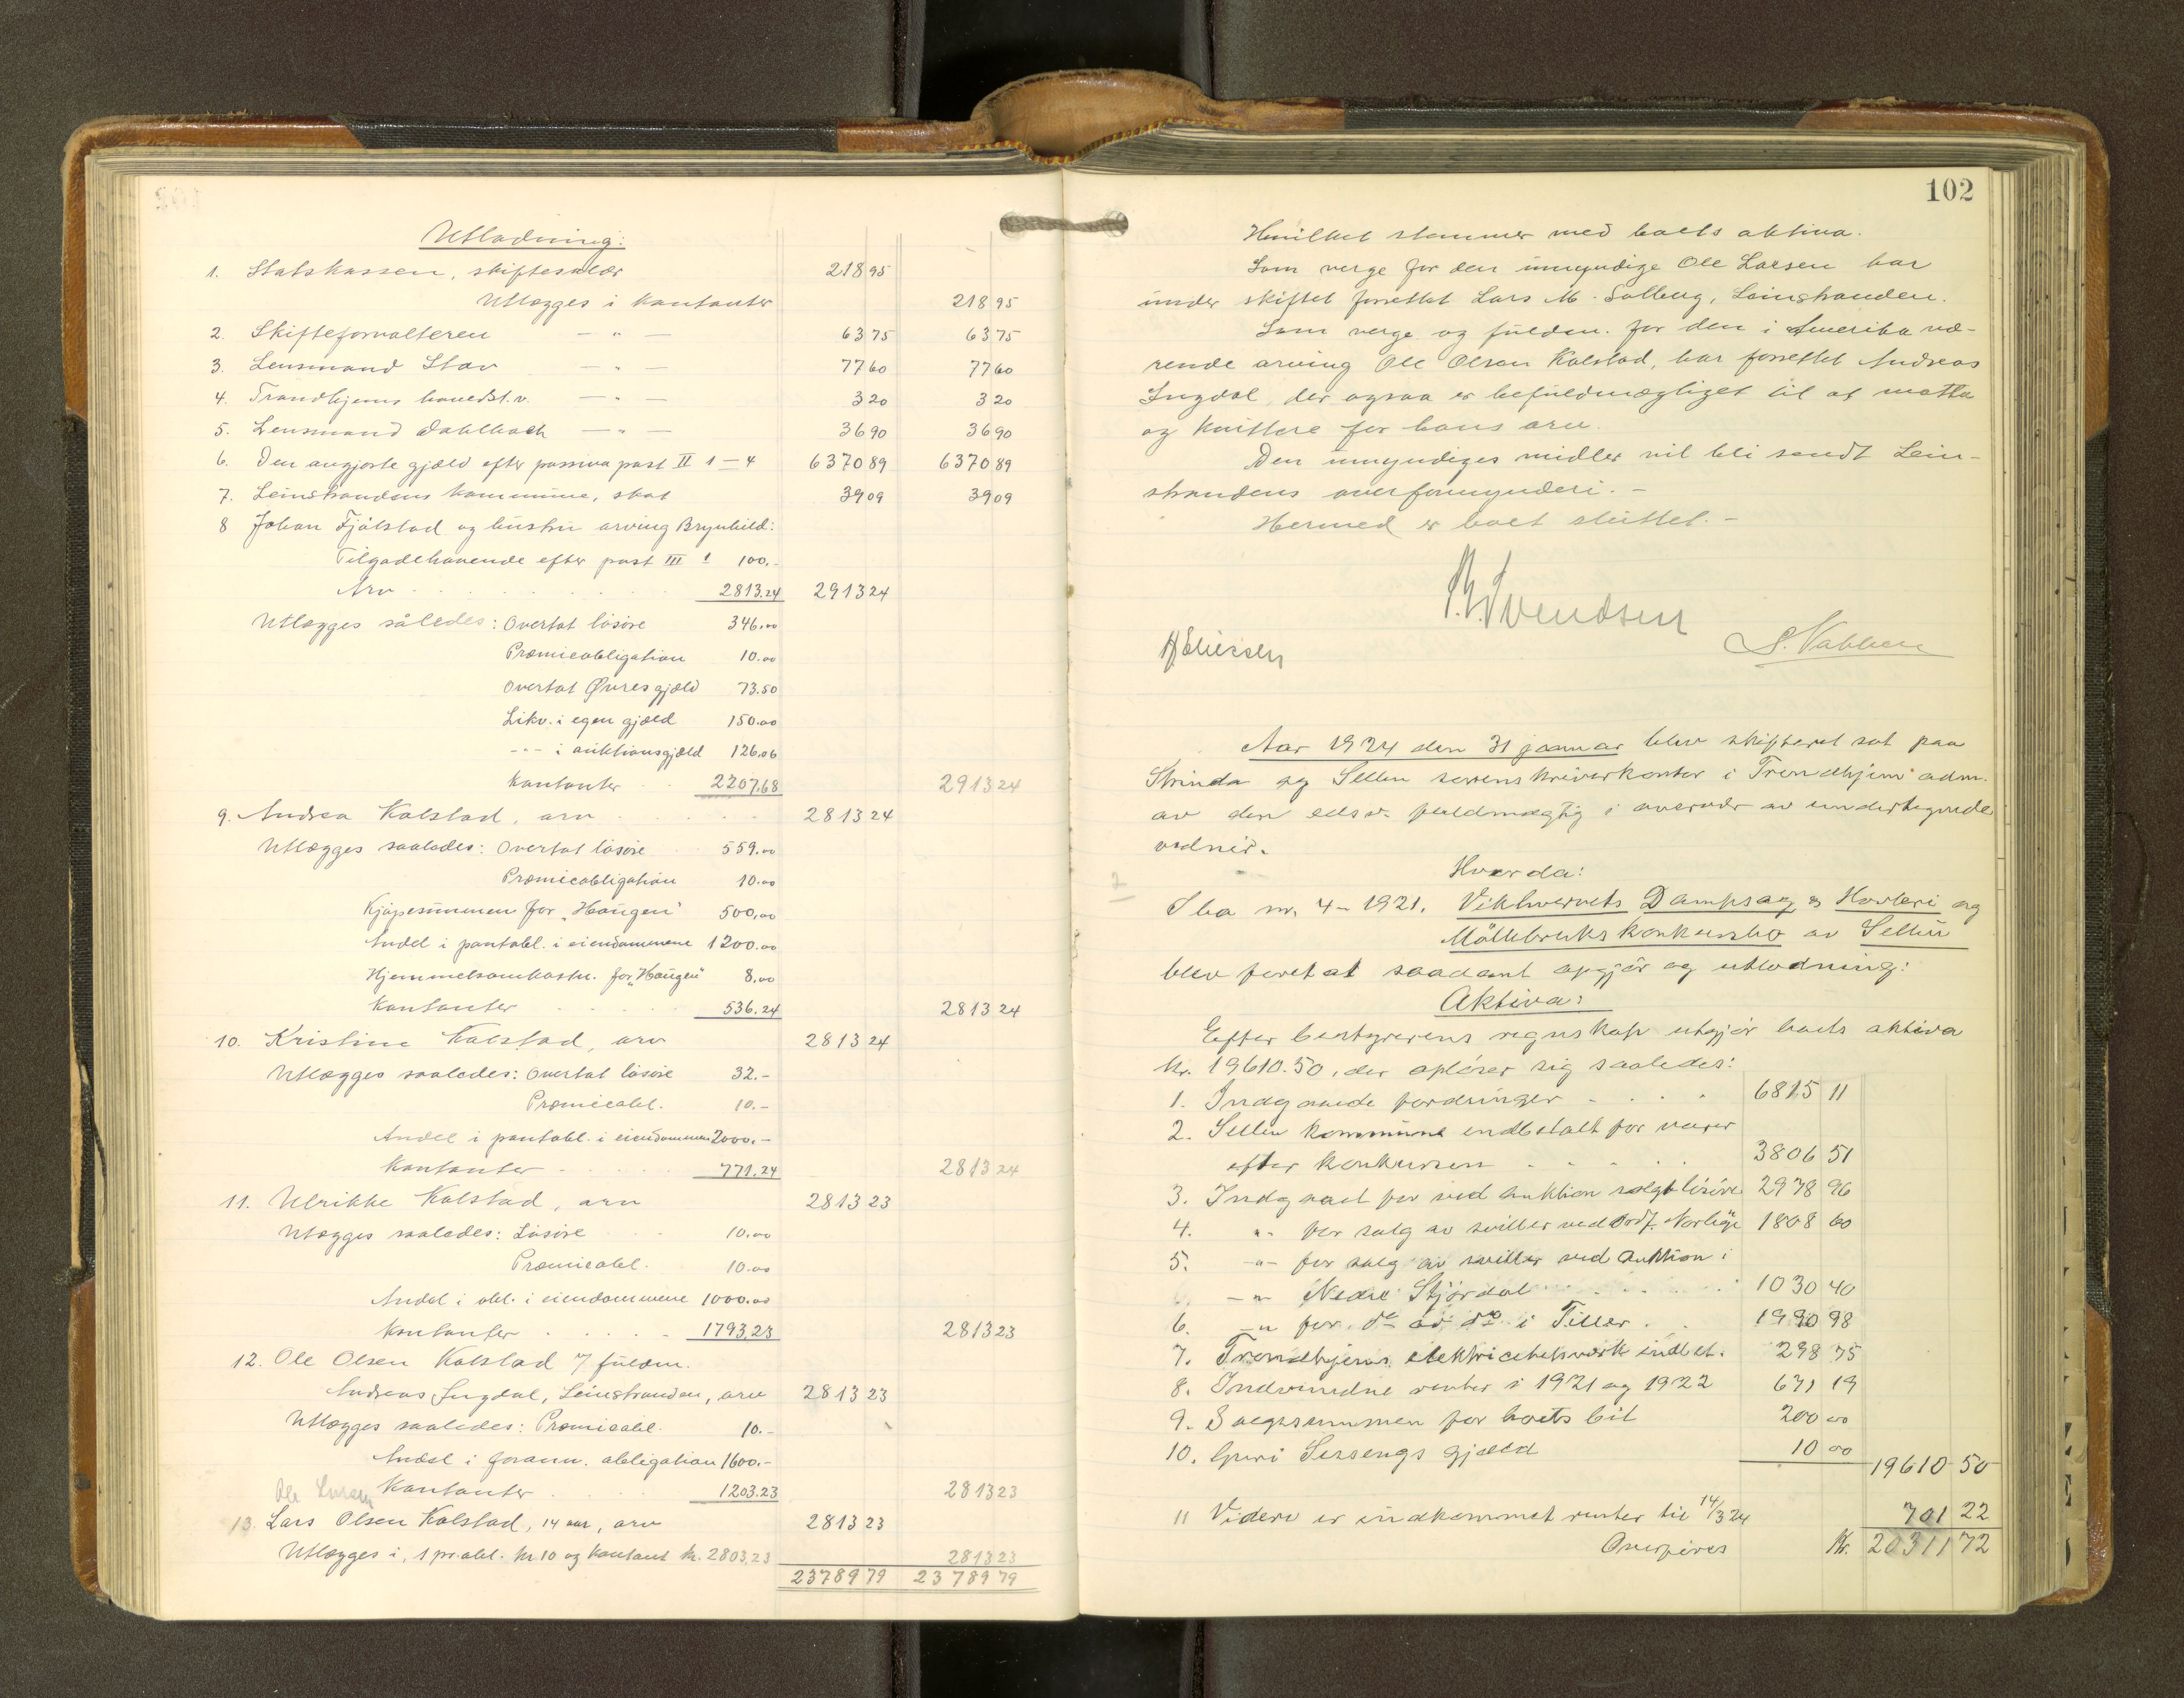 Utlodning:
1. Statskassen, skiftesalær 218 95
Utlægges i kontanter 218 95
2. Skifteforvalteren — " — 63 75 63 75
3. Lensmand Stav — " — 77 60 77 60
4. Trondhjems hovedst.v. — " — 3 20 3 20
5. Lensmand Dahlback — " — 36 90 36 90
6. Den angjorte gjæld efter passiva post II 1–4 6370 89 6370 89
7. Leinstrandens kommune, skat 39 09 39 09
8 Johan Fjölstad og hustru arving Brynhild:
Tilgodehavende efter post III 1 100.-
Arv 2813.24 2913 24
Utlægges således: Overtat lösöre 346.00
Præmieobligation 10.00
Overtat Øvres gjæld 73.50
Likv. i egen gjæld 150.00
-"- i auktionsgjæld 126.06
Kontanter 2207.68 2913 24
9. Andrea Kolstad, arv 2813 24
Utlægges saaledes: Overtat lösöre 559.00
Præmieobligation 10.00
Kjöpesummen for "Haugen" 500.00
Andel i pantobl. i eiendommene 1200.00
Hjemmelsomkostn. for "Haugen" 8.00
Kontanter 536.24 2813 24
10. Kristine Kolstad, arv 2813 24
Utlægges saaledes: Overtat lösöre 32.-
Præmieobl. 10.-
Andel i pantobl. i eiendommen 2000.-
Kontanter 771.24 2813 24
11. Ulrikke Kolstad, arv 2813 23
Utlægges saaledes: Lösöre 10.00
Præmieobl. 10.00
Andel i obl. i eiendommene 1000.00
Kontanter 1793.23 2813 23
12. Ole Olsen Kolstad v/ fuldm.
Andreas Ingdal, Leinstranden, arv 2813 23
Utlægges saaledes: Præmieobl. 10.-
Andel i forann. obligation 1600.-
Kontanter 1203.23 2813 23
Ole Larsen
13. Lars Olsen Kolstad, 14 aar, arv 2813 23
Utlægges i, 1 pr.obl. kr 10 og kontant kr. 2803.23 2813 23
23789 79 23789 79
102
Hvilket stemmer med boets aktiva.
Som verge for den umyndige Ole Larsen har
under skiftet forrettet Lars M. Solberg, Leinstranden.
Som verge og fuldm. for den i Amerika væ-
rende arving Ole Olsen Kolstad, har forrettet Andreas
Ingdal, der ogsaa er befuldmægtiget til at motta
og kvittere for hans arv.
Den umyndiges midler vil bli sendt Lein-
strandens overformynderi. -
Hermed er boet sluttet. -
Svendsen
A Eliessen
S. Vabben
Aar 1924 den 31 januar blev skifteret sat paa
Strinda og Selbu sorenskriverkontor i Trondhjem adm.
av den edsv. fuldmægtig i overvær av undertegnede
vidner.
Hvorda:
I bo nr. 4 - 1921. Vikhvervets Dampsag & Høvleri og
Möllebruks konkursbo av Selbu
blev foretat saadant opgjör og utlodning:
Aktiva:
Efter bestyrerens regnskap utgjör boets aktiva
kr. 19610.50, der oplöser sig saaledes:
1. Indgaaede fordringer 6815 11
2. Selbu kommune indbetalt for varer
efter konkursen 3806 51
3. Indgaaet for ved auktion solgt lösöre 2978 96
4. "- for salg av sviller ved Ordf. Norlige 1808 60
5. -"- for salg av sviller ved auktion i
-"- Nedre Stjördal 1030 40
6. -"- for do av do i Tiller 1990 98
7. Trondhjems elektricitetsverk indbet. 298 75
8. Indvundne renter i 1921 og 1922 671 19
9. Salgssummen for boets bil 200 00
10. Guri Sessengs gjæld 10 00
19610 50
11 Videre er indkommet renter til 14/3 24 701 22
Overföres Kr. 20311 72